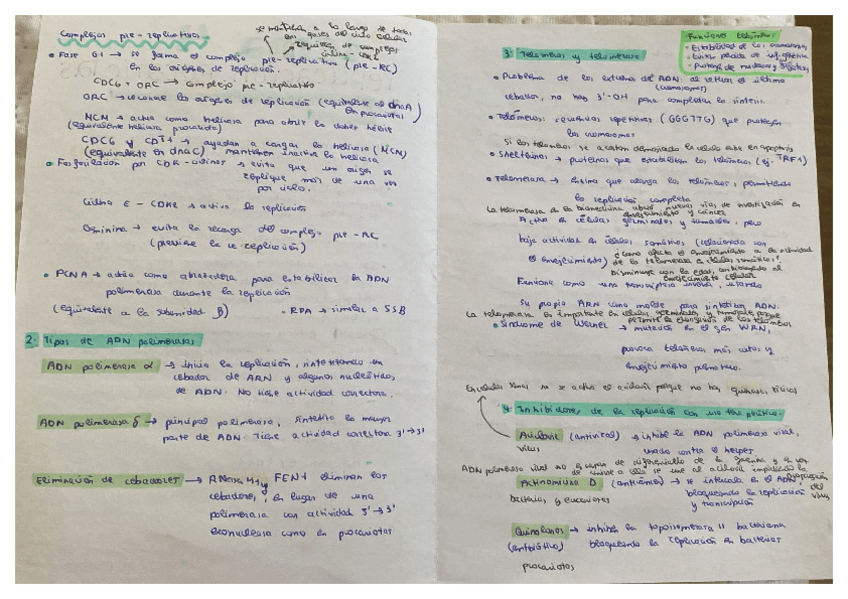 Complejos pre-replicativos
se mantiene a lo largo de todas
las fases del ciclo celular
requieren de complejos
ciclina-CDK
• Fase G1 → se forma el complejo pre-replicativo (pre-RC)
en los orígenes de replicación.
CDC6 + ORC → complejo pre-replicativo
ORC → reconoce los orígenes de replicación (equivalente al dnaA
en procariotas)
MCM → actúa como helicasa para abrir la doble hélice
(equivalente helicasa procariota)
CDC6 y CDT1 → ayudan a cargar la helicasa (MCM)
(equivalente en dnaC) mantienen inactiva la helicasa
• Fosforilación por CDK-ciclinas → evita que un origen se
replique más de una vez
por ciclo.
Ciclina E - CDK2 → activa la replicación
Geminina → evita la recarga del complejo pre-RC
(previene la re-replicación)
• PCNA → actúa como abrazadera para estabilizar la ADN
polimerasa durante la replicación
(equivalente a la subunidad β) • RPA → similar a SSB
2. Tipos de ADN polimerasas
ADN polimerasa α → Inicia la replicación, sintetizando un
cebador de ARN y algunos nucleótidos
de ADN. No tiene actividad correctora.
ADN polimerasa δ → principal polimerasa, sintetiza la mayor
parte de ADN. Tiene actividad correctora 3'→5'
Eliminación de cebadores → RNasa H1 y FEN1 eliminan los
cebadores, en lugar de una
polimerasa con actividad 5'→3'
exonucleasa como en procariotas
Funciones telómeros:
• Estabilidad de los cromosomas
3. Telómeros y telomerasa
• Problema de los extremos de ADN: al retirar el último
(cromosomas)
cebador, no hay 3'-OH para completar la síntesis.
• Telómeros: secuencias repetitivas (GGGTTG) que protegen
los cromosomas
Si los telómeros se acortan demasiado la célula entra en apoptosis
• Shelterinas → proteínas que estabilizan los telómeros (ej. TRF1)
• Telomerasa → enzima que alarga los telómeros, permitiendo
la replicación completa
La telomerasa en la biomedicina abrió nuevas vías de investigación en
envejecimiento y cáncer
Activa en células germinales y tumorales, pero
baja actividad en células somáticas (relacionada con
el envejecimiento)
¿Cómo afecta el envejecimiento a la actividad
de la telomerasa en células somáticas?
Disminuye con la edad, contribuyendo al
envejecimiento celular
Funciona como una transcriptasa inversa, usando
su propio ARN como molde para sintetizar ADN.
La telomerasa es importante en células germinales y tumorales porque
permite la elongación de los telómeros
• Síndrome de Werner → mutación en el gen WRN,
provoca telómeros más cortos y
envejecimiento prematuro.
En células sanas no se activa el aciclovir porque no hay quinasas víricas
4. Inhibidores de la replicación con uso terapéutico.
Aciclovir (antiviral) → inhibe la ADN polimerasa viral,
virus usado contra el herpes
ADN polimerasa viral no es capaz de diferenciarlo de la guanina y en vez
de unirse a ella se une al aciclovir impidiendo la
replicación
del
virus
Actinomicina D (anticáncer) → se intercala en el ADN,
bacterias y eucariotas bloqueando la replicación
y transcripción
Quinolonas → inhibe la topoisomerasa II bacteriana
(antibiótico) bloqueando la replicación en bacterias
procariotas